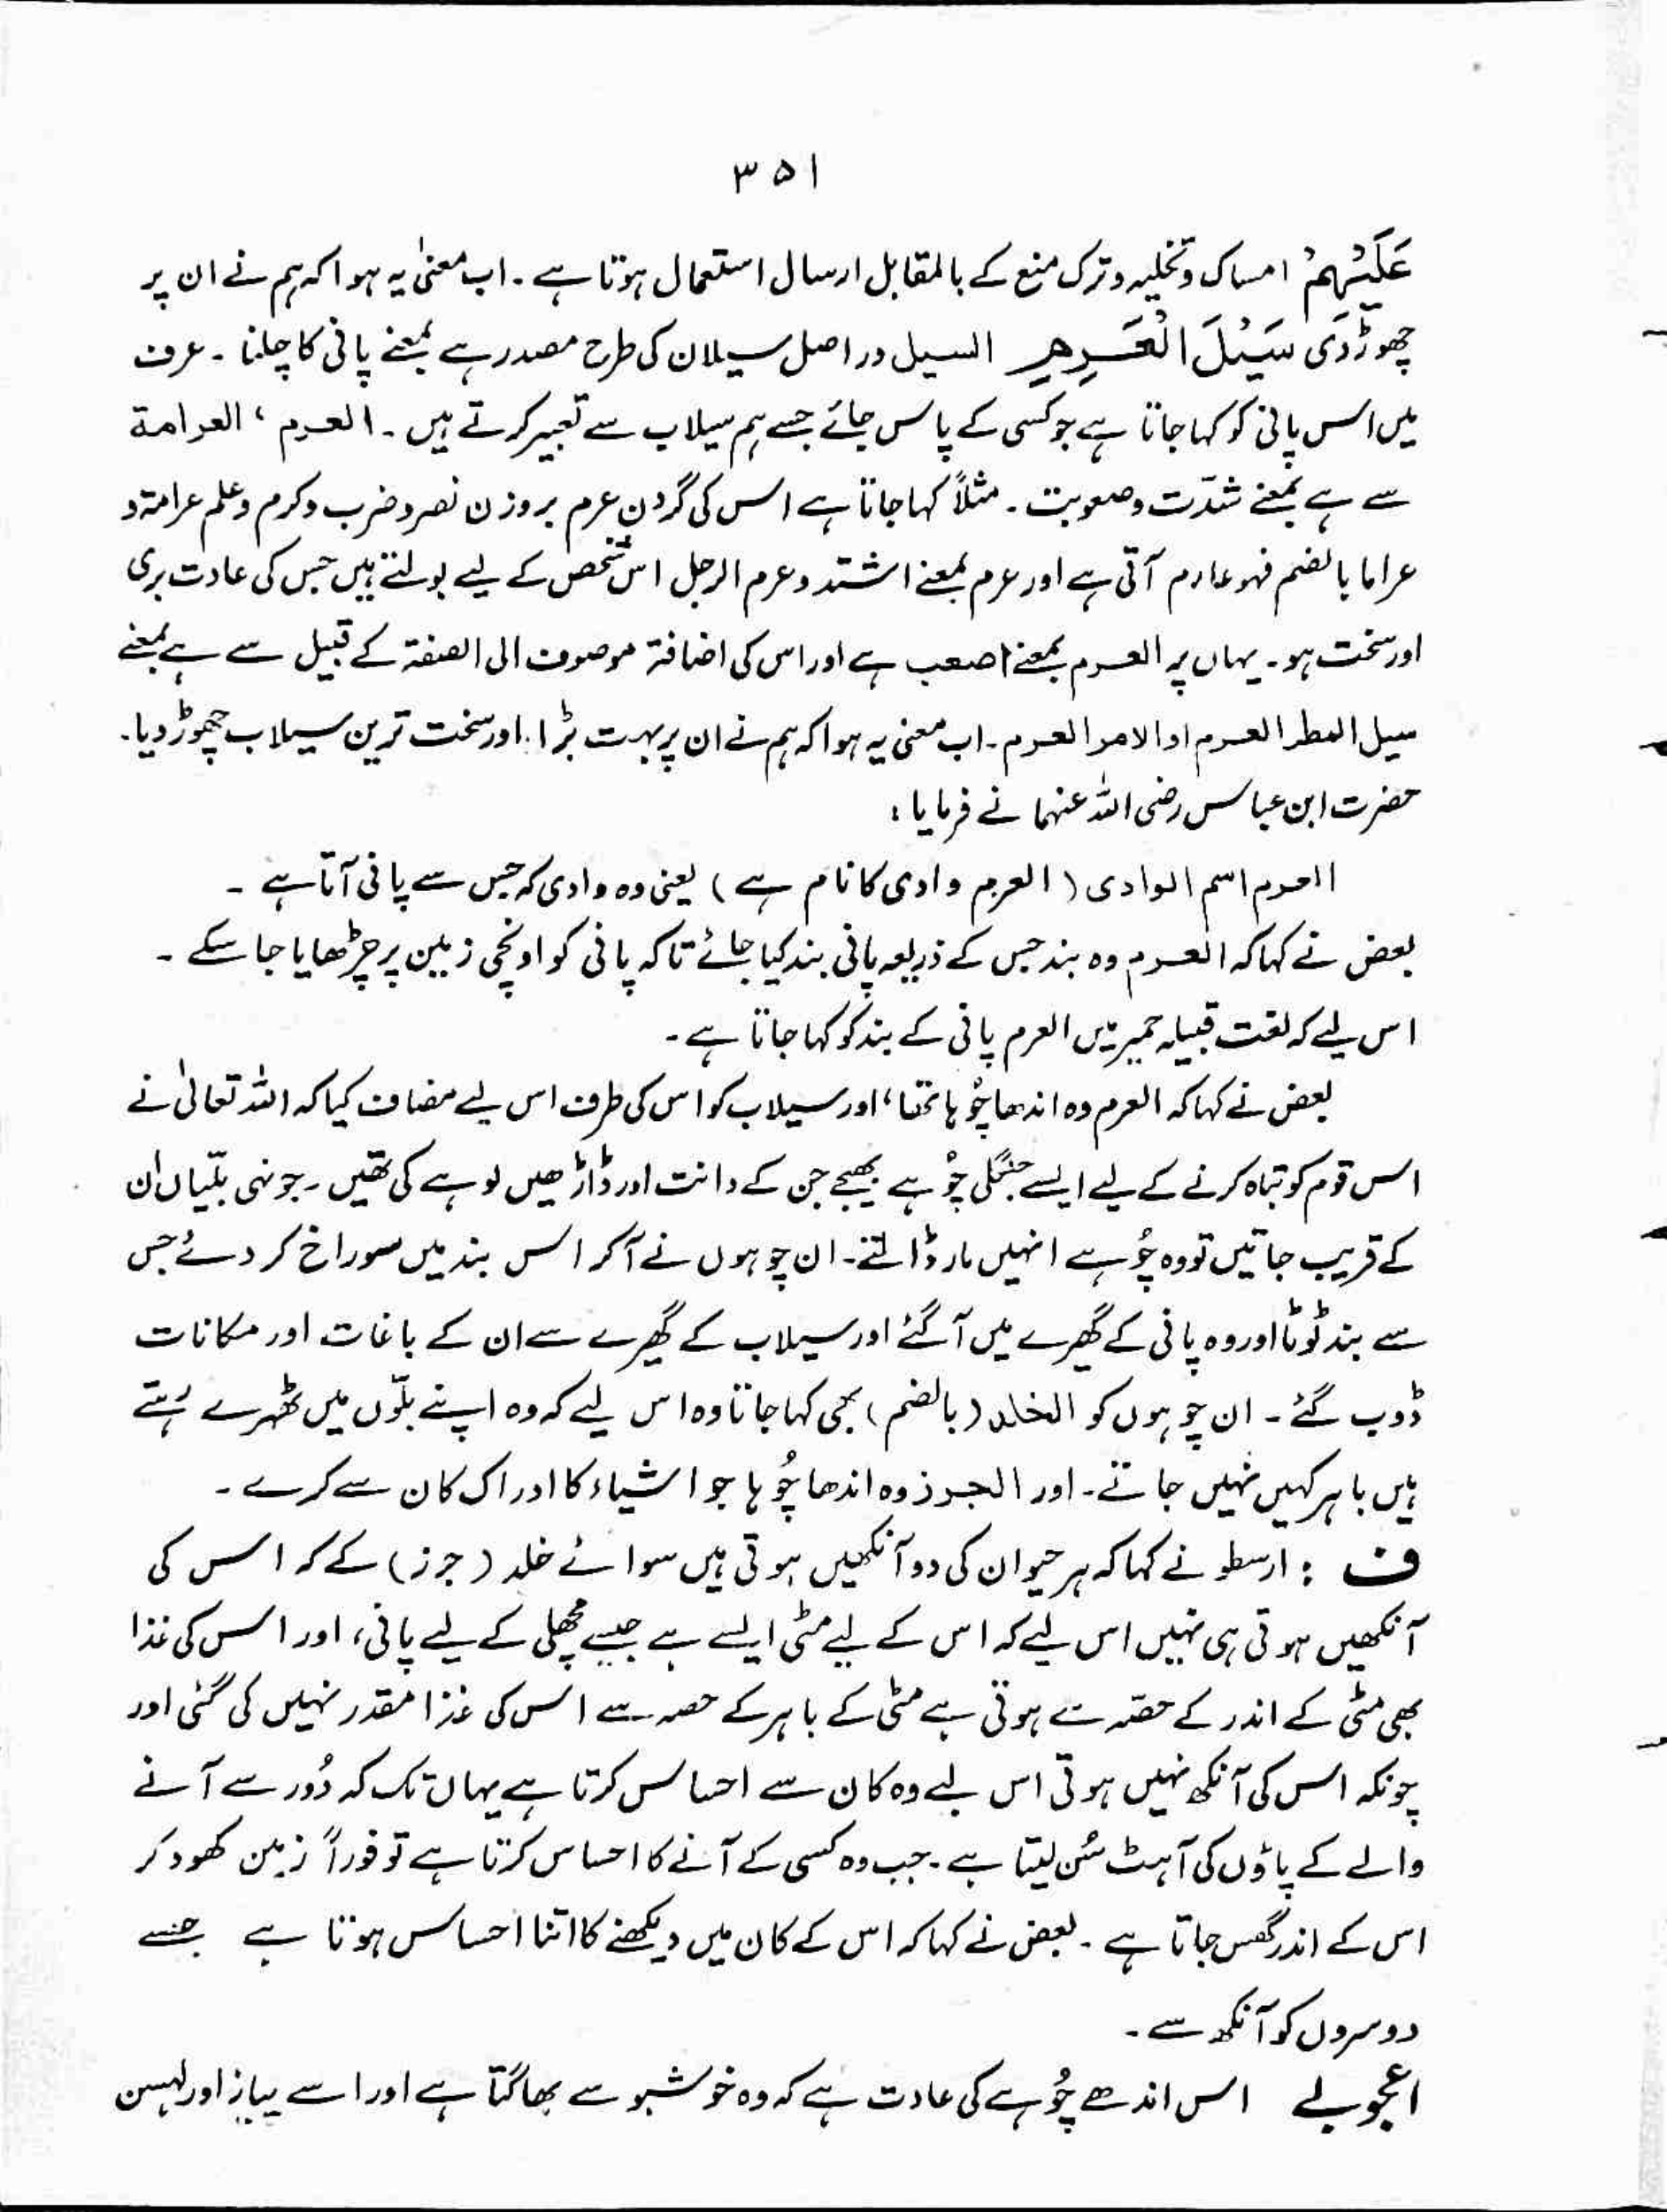 ۳۵۱
عَلَيْهِمْ امساک وتخلیہ وترک منع کے بالمقابل ارسال استعمال ہوتا ہے ۔ اب معنیٰ یہ ہوا کہ ہم نے ان پر
چھوڑ دی سَيْلَ الْعَرِمِ السیل در اصل سیلان کی طرح مصدر ہے بمعنے پانی کا چلنا ۔ عرف
میں اس پانی کو کہا جاتا ہے جو کسی کے پاس جائے جسے ہم سیلاب سے تعبیر کرتے ہیں ۔ العرم ، العرامة
سے ہے بمعنے شدّت وصعوبت ۔ مثلاً کہا جاتا ہے اس کی گردن عرم بروزن نصر وضرب وکرم وعلم عرامۃ و
عراما بالضم فہو عارم آتی ہے اور عرم بمعنے اشتد وعرم الرجل اس شخص کے لیے بولتے ہیں جس کی عادت بری
اور سخت ہو ۔ یہاں پر العرم بمعنے اصعب ہے اور اس کی اضافۃ موصوف الی الصفۃ کے قبیل سے ہے بمعنے
سیل المطر العرم او الامر العرم ۔ اب معنی یہ ہوا کہ ہم نے ان پر بہت بڑا اور سخت ترین سیلاب چھوڑ دیا ۔
حضرت ابن عباس رضی اللہ عنہما نے فرمایا :
العرم اسم الوادی ( العرم وادی کا نام ہے ) یعنی وہ وادی کہ جس سے پانی آتا ہے ۔
بعض نے کہا کہ العرم وہ بند جس کے ذریعہ پانی بند کیا جائے تاکہ پانی کو اونچی زمین پر چڑھایا جا سکے ۔
اس لیے کہ لغت قبیلہ حمیر میں العرم پانی کے بند کو کہا جاتا ہے ۔
بعض نے کہا کہ العرم وہ اندھا چُوہا تھا ، اور سیلاب کو اس کی طرف اس لیے مضاف کیا کہ اللہ تعالیٰ نے
اس قوم کو تباہ کرنے کے لیے ایسے جنگلی چُوہے بھیجے جن کے دانت اور ڈاڑھیں لوہے کی تھیں ۔ جونہی بلّیاں ان
کے قریب جاتیں تو وہ چُوہے انہیں مار ڈالتے ۔ ان چوہوں نے آکر اس بند میں سوراخ کر دئے جس
سے بند ٹوٹا اور وہ پانی کے گھیرے میں آگئے اور سیلاب کے گھیرے سے ان کے باغات اور مکانات
ڈوب گئے ۔ ان چوہوں کو الخلد ( بالضم ) بھی کہا جاتا وہ اس لیے کہ وہ اپنے بلّوں میں ٹھہرے رہتے
ہیں باہر کہیں نہیں جاتے ۔ اور الجرذ وہ اندھا چُوہا جو اشیاء کا ادراک کان سے کرے ۔
ف : ارسطو نے کہا کہ ہر حیوان کی دو آنکھیں ہوتی ہیں سوائے خلد ( جرز ) کے کہ اس کی
آنکھیں ہوتی ہی نہیں اس لیے کہ اس کے لیے مٹی ایسے ہے جیسے مچھلی کے لیے پانی ، اور اس کی غذا
بھی مٹی کے اندر کے حصّہ سے ہوتی ہے مٹی کے باہر کے حصہ سے اس کی غذا مقدر نہیں کی گئی اور
چونکہ اس کی آنکھ نہیں ہوتی اس لیے وہ کان سے احساس کرتا ہے یہاں تک کہ دُور سے آنے
والے کے پاؤں کی آہٹ سُن لیتا ہے ۔ جب وہ کسی کے آنے کا احساس کرتا ہے تو فوراً زمین کھود کر
اس کے اندر گھس جاتا ہے ۔ بعض نے کہا کہ اس کے کان میں دیکھنے کا اتنا احساس ہوتا ہے جسے
دوسروں کو آنکھ سے ۔
اعجوبے اس اندھے چُوہے کی عادت ہے کہ وہ خوشبو سے بھاگتا ہے اور اسے پیاز اور لہسن